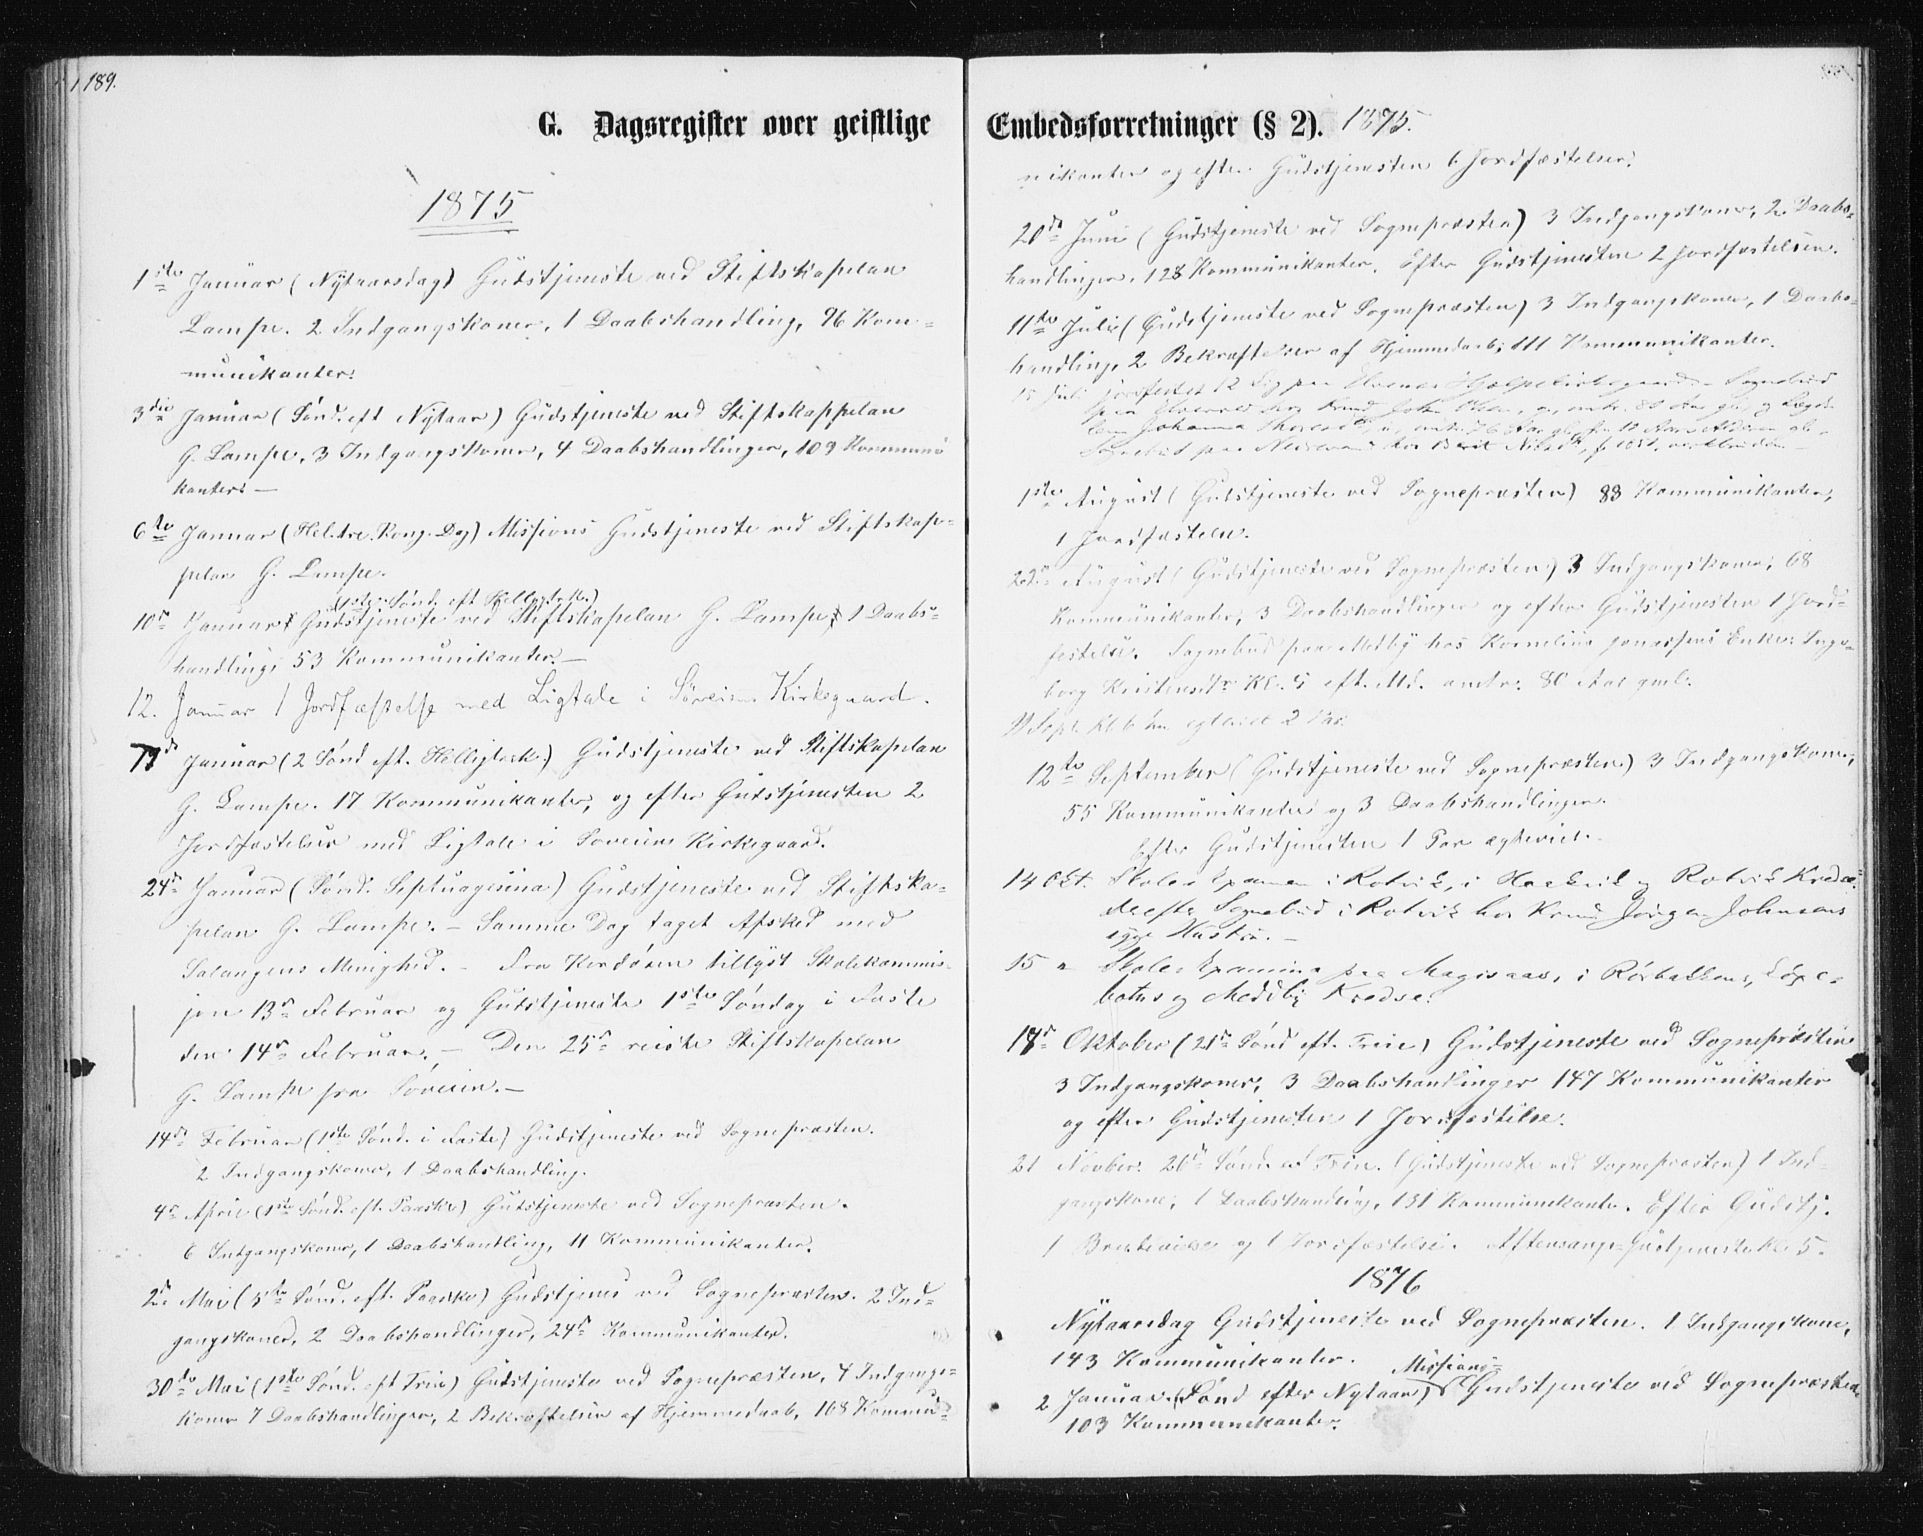 189.
G. Dagsregister over geistlige
1875
1ste Januar (Nytaarsdag) Gudstjeneste ved Stiftskapelan
Lampe. 2 Indgangskoner, 1 Daabshandling, 96 Kom=
munikanter.
3die Januar (Sønd. eft Nytaar) Gudstjeneste ved Stiftskappelan
G. Lampe, 3 Indgangskoner, 4 Daabshandlinger, 109 Kommuni
kanter. —
6te Januar (Hel. tre. Kong. Dag) Missions Gudstjeneste ved Stiftskap=
pelan G. Lampe.
(1ste Sønd. eft Helligtrek.)
10de Januar Gudstjeneste ved Stiftskapelan G. Lampe, 1 Daabs=
handling, 53 Kommunikanter. —
12. Januar 1 Jordfæstelse med Ligtale i Søreisa Kirkegaard.
17de Januar (2 Sønd eft. Helligtrek.) Gudstjeneste ved Stiftskapelan
G. Lampe. 17 Kommunikanter, og efter Gudstjenesten 2
Jordfæstelser med Ligtale i Soreisens Kirkegaard.
24de Januar (Sønd. Septuagesima) Gudstjeneste ved Stiftska=
pelan G. Lampe. — Samme Dag taget Afsked med
Salangens Menighed. — Fra Kordøren tillyst Skolekommis=
jon 13de Februar og Gudstjeneste 1ste Søndag i Faste
den 14de Februar. — Den 25de reiste Stiftskapelan
G. Lampe fra Soreisen. —
14de Februar (1ste Sønd. i Faste) Gudstjeneste ved Sognepræsten.
2 Indgangskoner, 1 Daabshandling.
4de April (1ste Sønd. eft. Paaske) Gudstjeneste ved Sognepræsten.
6 Indgangskoner, 1 Daabshandling, 11 Kommunikanter.
2de Mai (5te Sønd. eft. Paaske) Gudstjenes ved Sognepræsten. 2 Ind=
gangskoner, 2 Daabshandlinger, 24de Kommunikanter.
30te Mai (1ste Sønd. eft Trin) Gudstjeneste ved Sognepræsten, 4 Indgangs=
koner 7 Daabshandlinger, 2 Bekræftelser af Hjemmedaab, 168 Kommu=
Embedsforretninger (§ 2). 1875.
nikanter og efter Gudstjenesten 6 Jordfæstelser.
20de Juni (Gudstjeneste ved Sognepræsten) 3 Indgangskoner, 2 Daabs=
handlinger, 128 Kommunikanter. Efter Gudstjenesten 2 Jordfæstelser.
11te Juli (Gudstjeneste ved Sognepræsten) 3 Indgangskoner, 1 Daabs=
handling, 2 Bekræftelser af Hjemmedaab, 111 Kommunikanter.
15 Juli jordfestet 12 Lig paa Hjælpekirkegaard. — Sognebud
1ste August (Gudstjeneste ved Sognepræsten) 88 Kommunikanter,
1 Jordfæstelse.
22de August (Gudstjeneste ved Sognepræsten) 3 Indgangskoner, 68
Kommunikanter, 3 Daabshandlinger og efter Gudstjenesten 1 Jord=
festelse. Sognebud paa Medby hos Kornelius Jonassens Enke: Inge=
borg Kristensdtr Kl. 5 eft. Md. omtr. 80 Aar gml.
Sept. Kl. 6 egteviet 2 Par.
12te September (Gudstjeneste ved Sognepræsten) 3 Indgangskoner,
55 Kommunikanter og 3 Daabshandlinger.
Efter Gudstjenesten 1 Par egteviet.
14 Okt. Skoleexamen i Rotvik, i og Rotvik Kredse.
Sognebud i Rotvik hos Jørgen Johnsens
syge Hustru. —
15 " Skoleexamina paa i Rørbakken, Løxe=
botns og Meddby Kredse.
18de Oktober (21de Sønd eft. Trin) Gudstjeneste ved Sognepræsten
3 Indgangskoner, 3 Daabshandlinger 147 Kommunikanter
og efter Gudstjenesten 1 Jordfæstelse.
21 Novber. 26de Sønd. ef Trin. (Gudstjeneste ved Sognepræsten) 1 Ind=
gangskone, 1 Daabshandling, 131 Kommunikanter. Efter Gudstj.
1 Brudevielse og 1 Jordfæstelse. Aftensangs=Gudstjeneste Kl 5.
1876
Nytaarsdag Gudstjeneste ved Sognepræsten. 1 Indgangskone,
143 Kommunikanter.
Missions=
2 Januar. (Sønd efter Nytaar) Gudstjeneste ved Sognepræsten.
103 Kommunikanter.